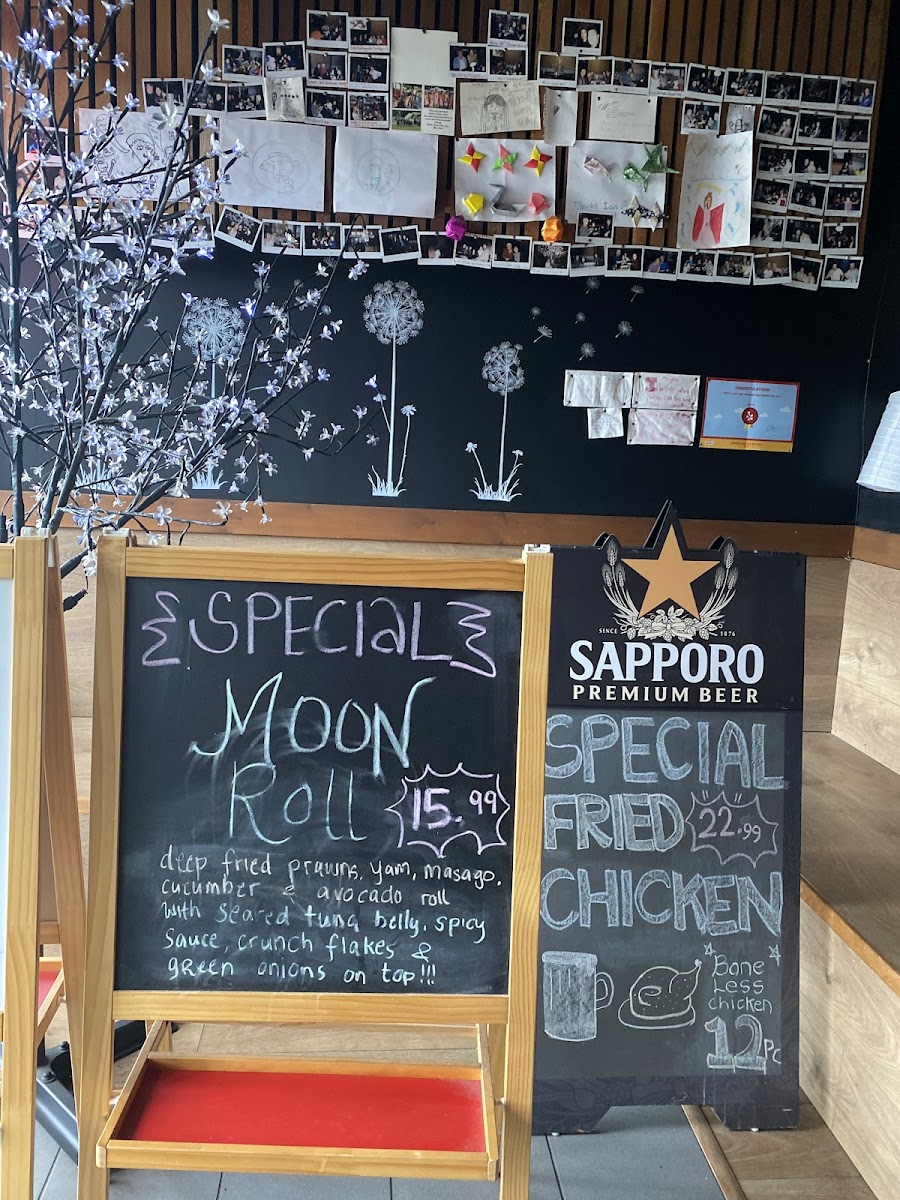 Thanks Ian
SPECIAL
MOON
Roll
15.99
deep fried prawns, yam, masago,
cucumber & avocado roll
with seared tuna belly, spicy
sauce, crunch flakes &
green onions on top!!!
SINCE 1876
SAPPORO
PREMIUM BEER
SPECIAL
FRIED
22.99
CHICKEN
Bone
Less
chicken
12pc